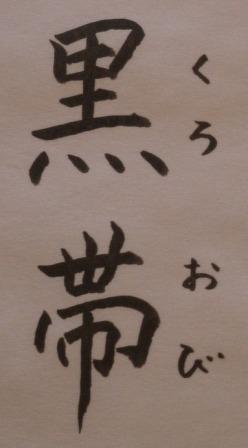 黒帯
くろおび